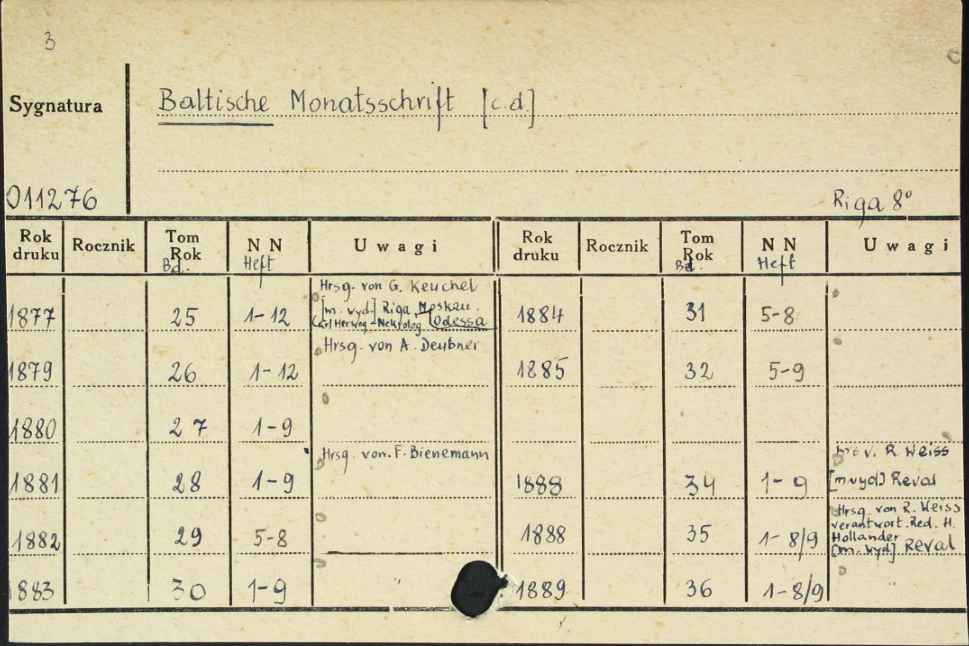 3
Sygnatura
Baltische Monatsschrift [c.d.]
011276
Riga 8°
Rok druku Rocznik Tom Rok Bd. NN Heft Uwagi Rok druku Rocznik Tom Rok Bd. NN Heft Uwagi
Hrsg. von G. Keuchel
1877 25 1-12 [m. wyd.] Riga, Moskau. 1884 31 5-8
Nekrolog [Odessa
Hrsg. von A. Deubner
1879 26 1-12 1885 32 5-9
1880 27 1-9
Hrsg. von. F. Bienemann v. R. Weiss
1881 28 1-9 1888 34 1-9 [m wyd] Reval
Hrsg. von R. Weiss
verantwort. Red. H.
1882 29 5-8 1888 35 1-8/9 Hollander
[m. wyd] Reval
1883 30 1-9 1889 36 1-8/9